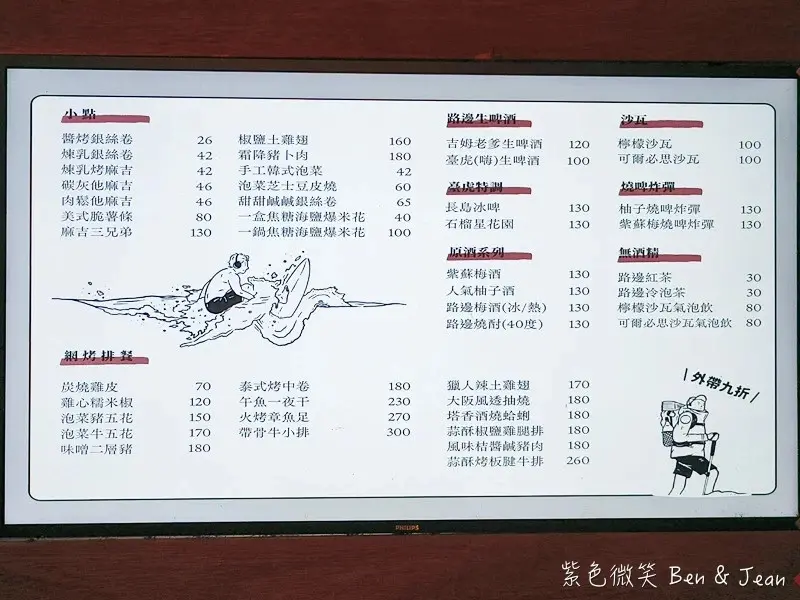 小點
醬烤銀絲卷 26
煉乳銀絲卷 42
煉乳烤麻吉 42
碳灰他麻吉 46
肉鬆他麻吉 46
美式脆薯條 80
麻吉三兄弟 130
椒鹽土雞翅 160
霜降豬卜肉 180
手工韓式泡菜 42
泡菜芝士豆皮燒 60
甜甜鹹鹹銀絲卷 65
一盒焦糖海鹽爆米花 40
一鍋焦糖海鹽爆米花 100
路邊生啤酒
吉姆老爹生啤酒 120
臺虎(嗨)生啤酒 100
臺虎特調
長島冰啤 130
石榴星花園 130
原酒系列
紫蘇梅酒 130
人氣柚子酒 130
路邊梅酒(冰/熱) 130
路邊燒酎(40度) 130
沙瓦
檸檬沙瓦 100
可爾必思沙瓦 100
燒啤炸彈
柚子燒啤炸彈 130
紫蘇梅燒啤炸彈 130
無酒精
路邊紅茶 30
路邊冷泡茶 30
檸檬沙瓦氣泡飲 80
可爾必思沙瓦氣泡飲 80
網烤排餐
炭燒雞皮 70
雞心糯米椒 120
泡菜豬五花 150
泡菜牛五花 170
味噌二層豬 180
泰式烤中卷 180
午魚一夜干 230
火烤章魚足 270
帶骨牛小排 300
獵人辣土雞翅 170
大阪風透抽燒 180
塔香酒燒蛤蜊 180
蒜酥椒鹽雞腿排 180
風味桔醬鹹豬肉 180
蒜酥烤板腱牛排 260
\外帶九折/
PHILIPS
紫色微笑 Ben & Jean